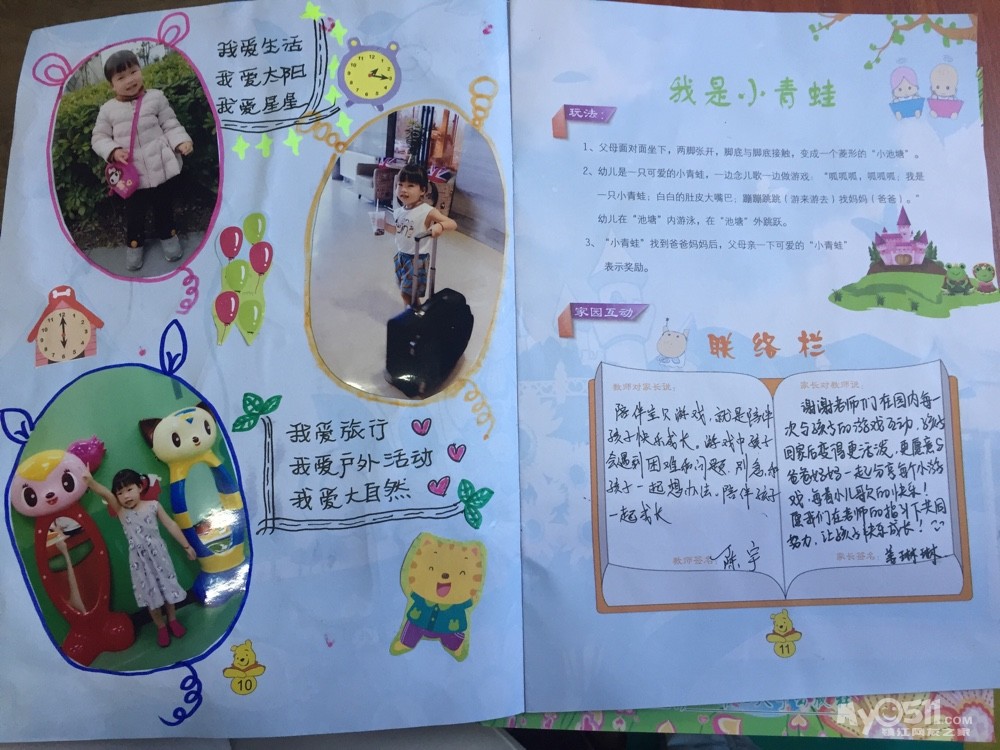 我爱生活
我爱太阳
我爱星星
我爱旅行
我爱户外活动
我爱大自然
10
我是小青蛙
玩法：
1、父母面对面坐下，两脚张开，脚底与脚底接触，变成一个菱形的“小池塘”。
2、幼儿是一只可爱的小青蛙，一边念儿歌一边做游戏：“呱呱呱，呱呱呱；我是
一只小青蛙；白白的肚皮大嘴巴；蹦蹦跳跳（游来游去）找妈妈（爸爸）。”
幼儿在“池塘”内游泳，在“池塘”外跳跃。
3、“小青蛙”找到爸爸妈妈后，父母亲一下可爱的“小青蛙”
表示奖励。
家园互动
联络栏
教师对家长说：
陪伴宝贝游戏，就是陪伴
孩子快乐成长。游戏中孩子
会遇到困难和问题，别急，和
孩子一起想办法。陪伴孩子
一起成长
教师签名：陈宇
家长对教师说：
谢谢老师们在园内每一
次与孩子的游戏互动，孩子
回家后变得更活泼，更愿意与
爸爸妈妈一起分享每个小游
戏，每首小儿歌的快乐！
愿我们在老师的指引下共同
努力，让孩子快乐成长！
家长签名：姜琳琳
11
My0511.com
镇江网友之家